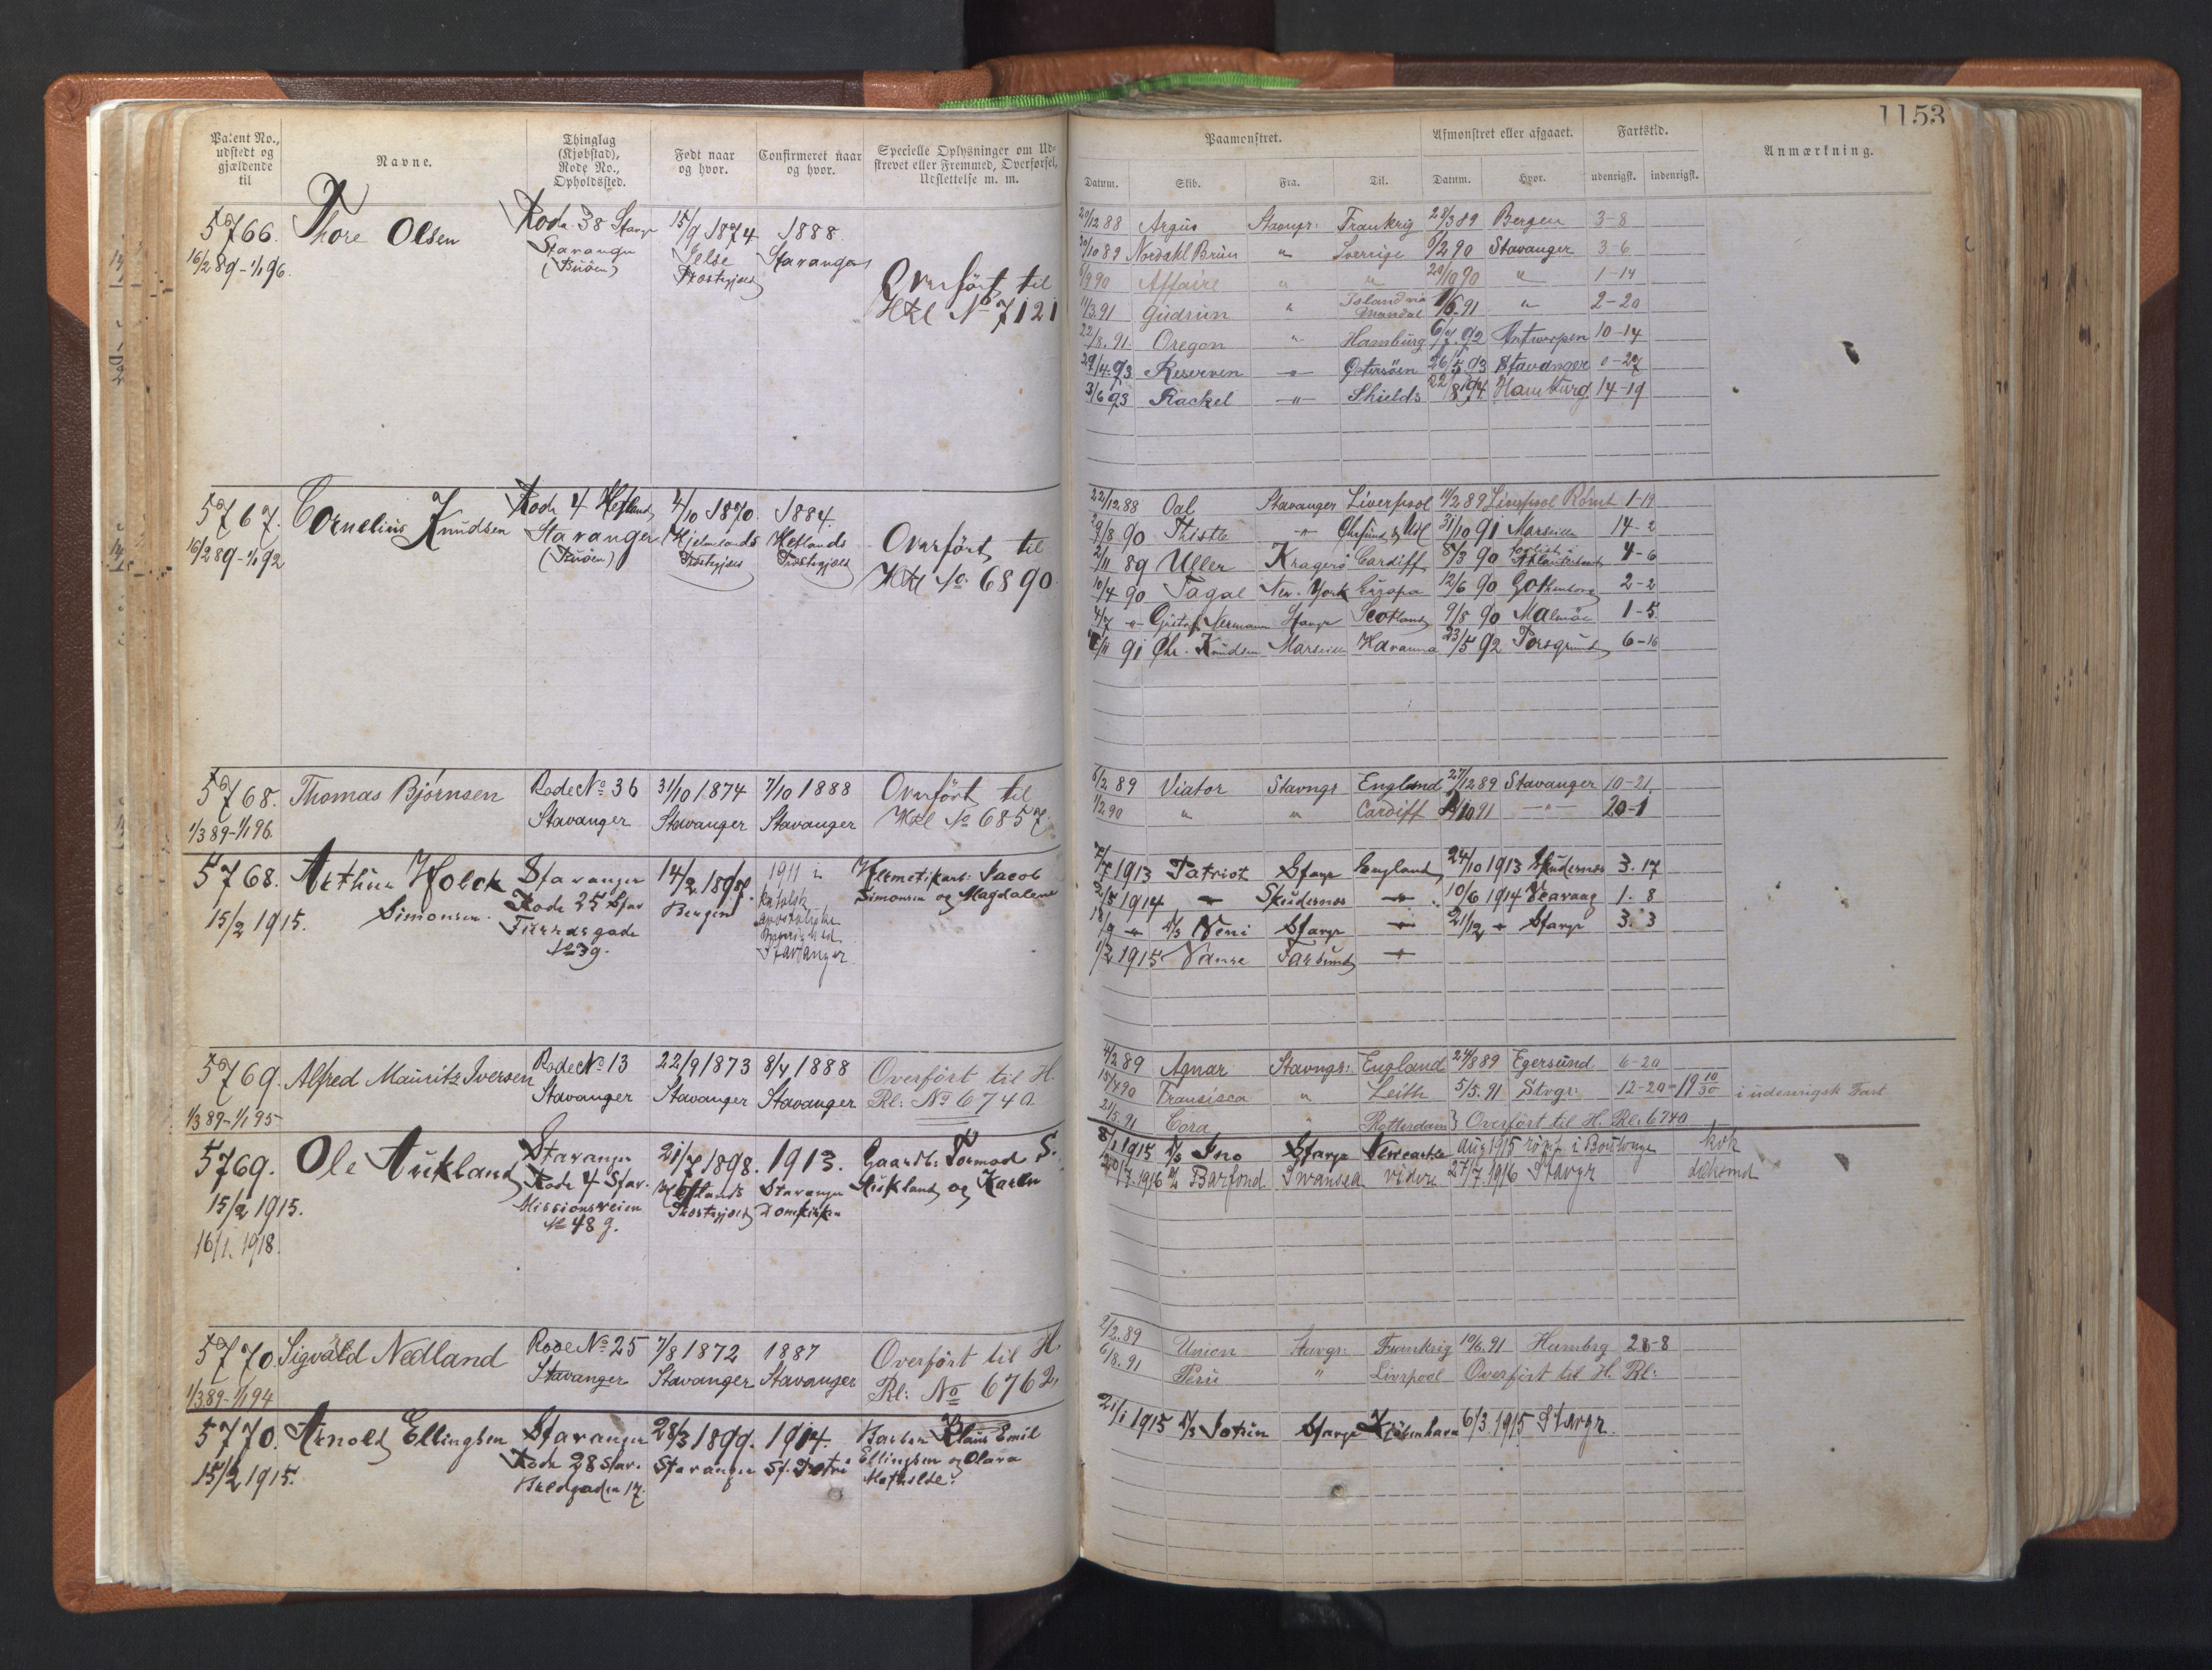 1153
Patent No., udstedt og gjældende til | Navne. | Thinglag (Kjøbstad), Rode No., Opholdssted. | Født naar og hvor. | Confirmeret naar og hvor. | Specielle Oplysninger om Udskrevet eller Fremmed, Overførsel, Udslettelse m. m.
Paamønstret. | Afmønstret eller afgaaet. | Fartstid. | Anmærkning.
Datum. | Skib. | Fra. | Til. | Datum. | Hvor. | udenrigsk. | indenrigsk.
5766. Thore Olsen Rode 38 Stavgr 15/9 1874 1888.
16/2 89 - 1/1 96. Stavanger (Buøen) Jelse Præstegjæld Stavanger
Overført til
Hxl No 7121
20/12 88 Argus Stavngr: Frankrig 28/3 89 Bergen 3-8
30/10 89 Nordahl Brun " Sverrige 6/2 90 Stavanger 3-6
6/9 90 Affaire " " 20/10 90 " 1-14
11/3.91 Gudrun " Island via Mandal 1/6.91 " 2-20
22/8.91 Oregon " Hamburg 6/7.92 Antwerpen 10-14
29/4.93 Reserven " Østersøen 26/5 93 Stavanger 0-27
3/6 93 Rachel " Shields 22/8 94 Hamburg 14-19
5767. Cornelius Knudsen Rode 4 Hetland 4/10 1870. 1884.
16/2 89 - 1/1 92 Stavanger (Buøen) Hjelmelands Præstegjæld Hetlands Præstegjæld
Overført til
Hxl No. 6890.
22/12.88 Oal Stavanger Liverpool 11/2 89 Liverpool Rømt 1-19
29/8 90 Thistle " 31/10 91 Marseille 14-2
2/11 89 Uller Kragerø Cardiff 8/3 90 forlist i Atlanterhavet 4-6
10/4 90 Tagal New-York Europa 12/6 90 Gothenborg 2-2
4/7 " Gustaf Hermann Stavgr Scotland 9/8 90 Malmöe 1-5.
11 91 Chr. Knudsen Marseille Havanna 23/5 92 Porsgrund 6-16
5768. Thomas Bjørnsen Rode No 36 31/10 1874 7/10 1888 Overført til
1/3 89 - 1/1 96. Stavanger Stavanger Stavanger Hxl No 6857.
6/2 89 Viator Stavngr England 27/12 89 Stavanger 10-21.
1/2 90 " " Cardiff 10 91 " 20-1
5768. Arthur Holck Simonsen. Stavanger 14/2 1898. 1911 i Klemetskar: Jacob
15/2 1915. Rode 25 Stav Bergen katolsk apostoliske Simonsen og Magdalene
No 39. Stavanger.
7/7 1913 Patriot Stavgr England 24/10 1913 Skudesnes 3.17
2/5 1914 " Skudesnes " 10/6 1914 Veavaag 1.8
18/9 " D/S Veni Stavgr " 21/12 " Stavgr 3.3
1/2 1915 Vanse Farsund "
5769. Alfred Mauritz Iversen Rode No 13 22/9 1873 8/4 1888 Overført til H.
1/3 89 - 1/1 95 Stavanger Stavanger Stavanger Rl: No 6740.
4/2 89 Agnar Stavngr: England 24/8 89 Egersund 6-20
15/4 90 Francisca " Leith 5/5.91 Stvgr: 12-20 = 19 10/30 i udenrigsk Fart
21/5 91 Cora " Rotterdam } Overført til H. Rl: 6740
5769. Ole Aukland Stavanger 21/7 1898. 1913. Gaardbr: Tormod S.
15/2 1915. Rode 4 Stav. Hetlands Stavanger Aukland og Karen
16/1.1918. Missionsveien No 48 g. Præstegjæld Domkirke
8/1 1915 D/S Ino Stavgr Newcastle Aug 1915 rømt i Boulogne kok
20/7.1916 Barfond Swansea videre 27/7.1916 Stavgr dæksmd
5770. Sigvald Nedland Rode No 25 7/8 1872 1887 Overført til H.
1/3 89 - 1/1 94 Stavanger Stavanger Stavanger Rl: No 6762,
2/2.89 Union Stavgr: Frankrig 10/6.91 Hambrg 28-8
6/8.91 Peru " Livrpool Overført til H. Rl:
5770. Arnold Ellingsen Stavanger 28/3 1899. 1914. Barber Klaus Emil
15/2 1915. Rode 28 Stav. Stavanger St. Petri Ellingsen og Olava
17. Mathilde.
21/1 1915 D/S Jotun Stavgr Kjøbenhavn 6/3.1915 Stavgr.